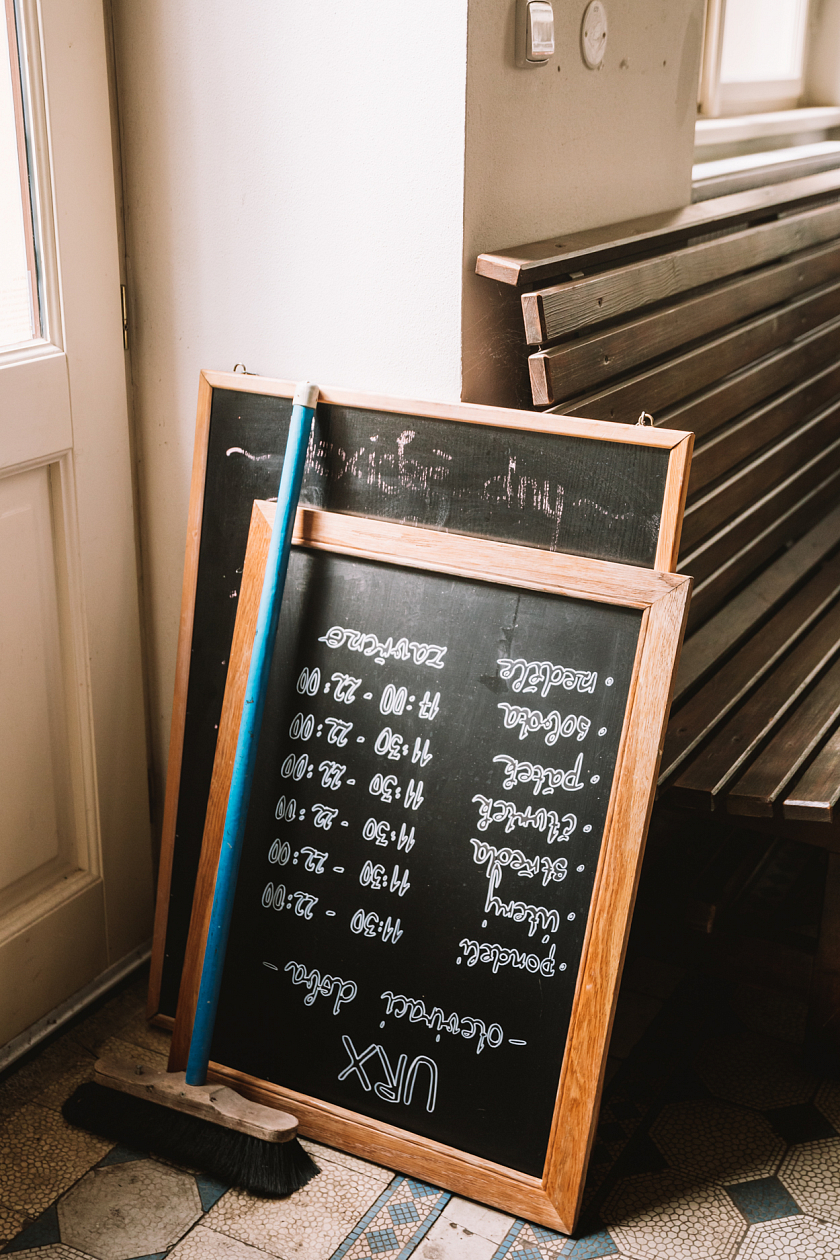 URX
- otevírací doba -
• pondělí 11:30 - 22:00
• úterý 11:30 - 22:00
• středa 11:30 - 22:00
• čtvrtek 11:30 - 22:00
• pátek 11:30 - 22:00
• sobota 17:00 - 22:00
• neděle zavřeno